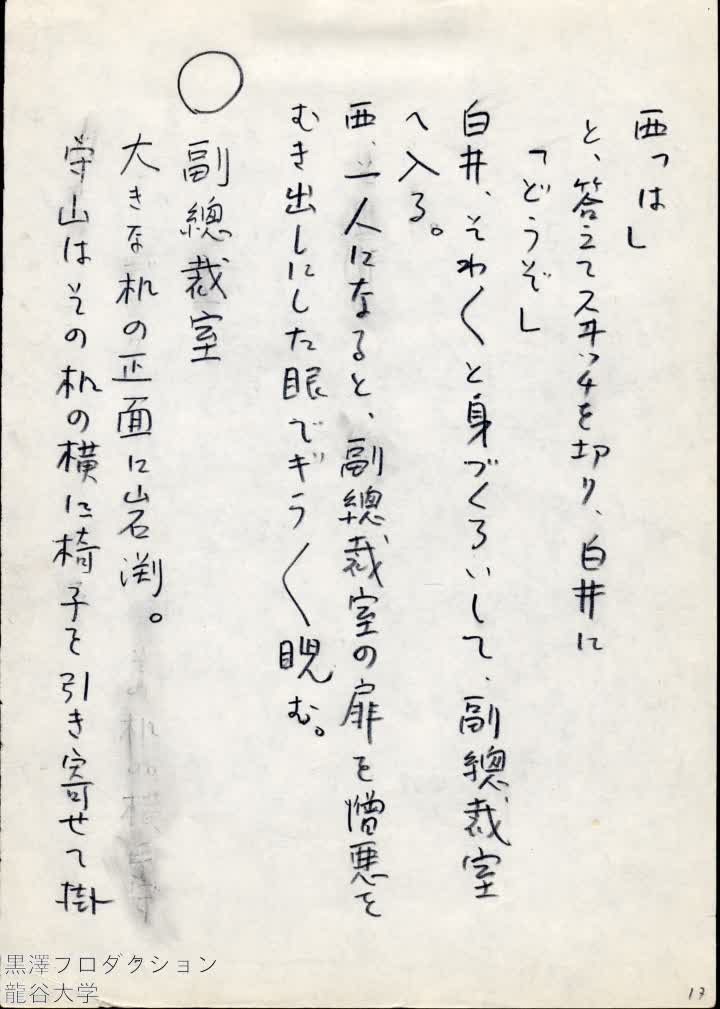 西「はし
と、答えてスヰッチを切り、白井に
「どうぞし
白井、そわ〱と身づくろいして、副總裁室
へ入る。
西、一人になると、副總裁室の扉を憎悪を
むき出しにした眼でギラ〱睨む。
○
副總裁室
大きな机の正面に岩渕。
守山はその机の横に椅子を引き寄せて掛
黒澤プロダクション
龍谷大学
17